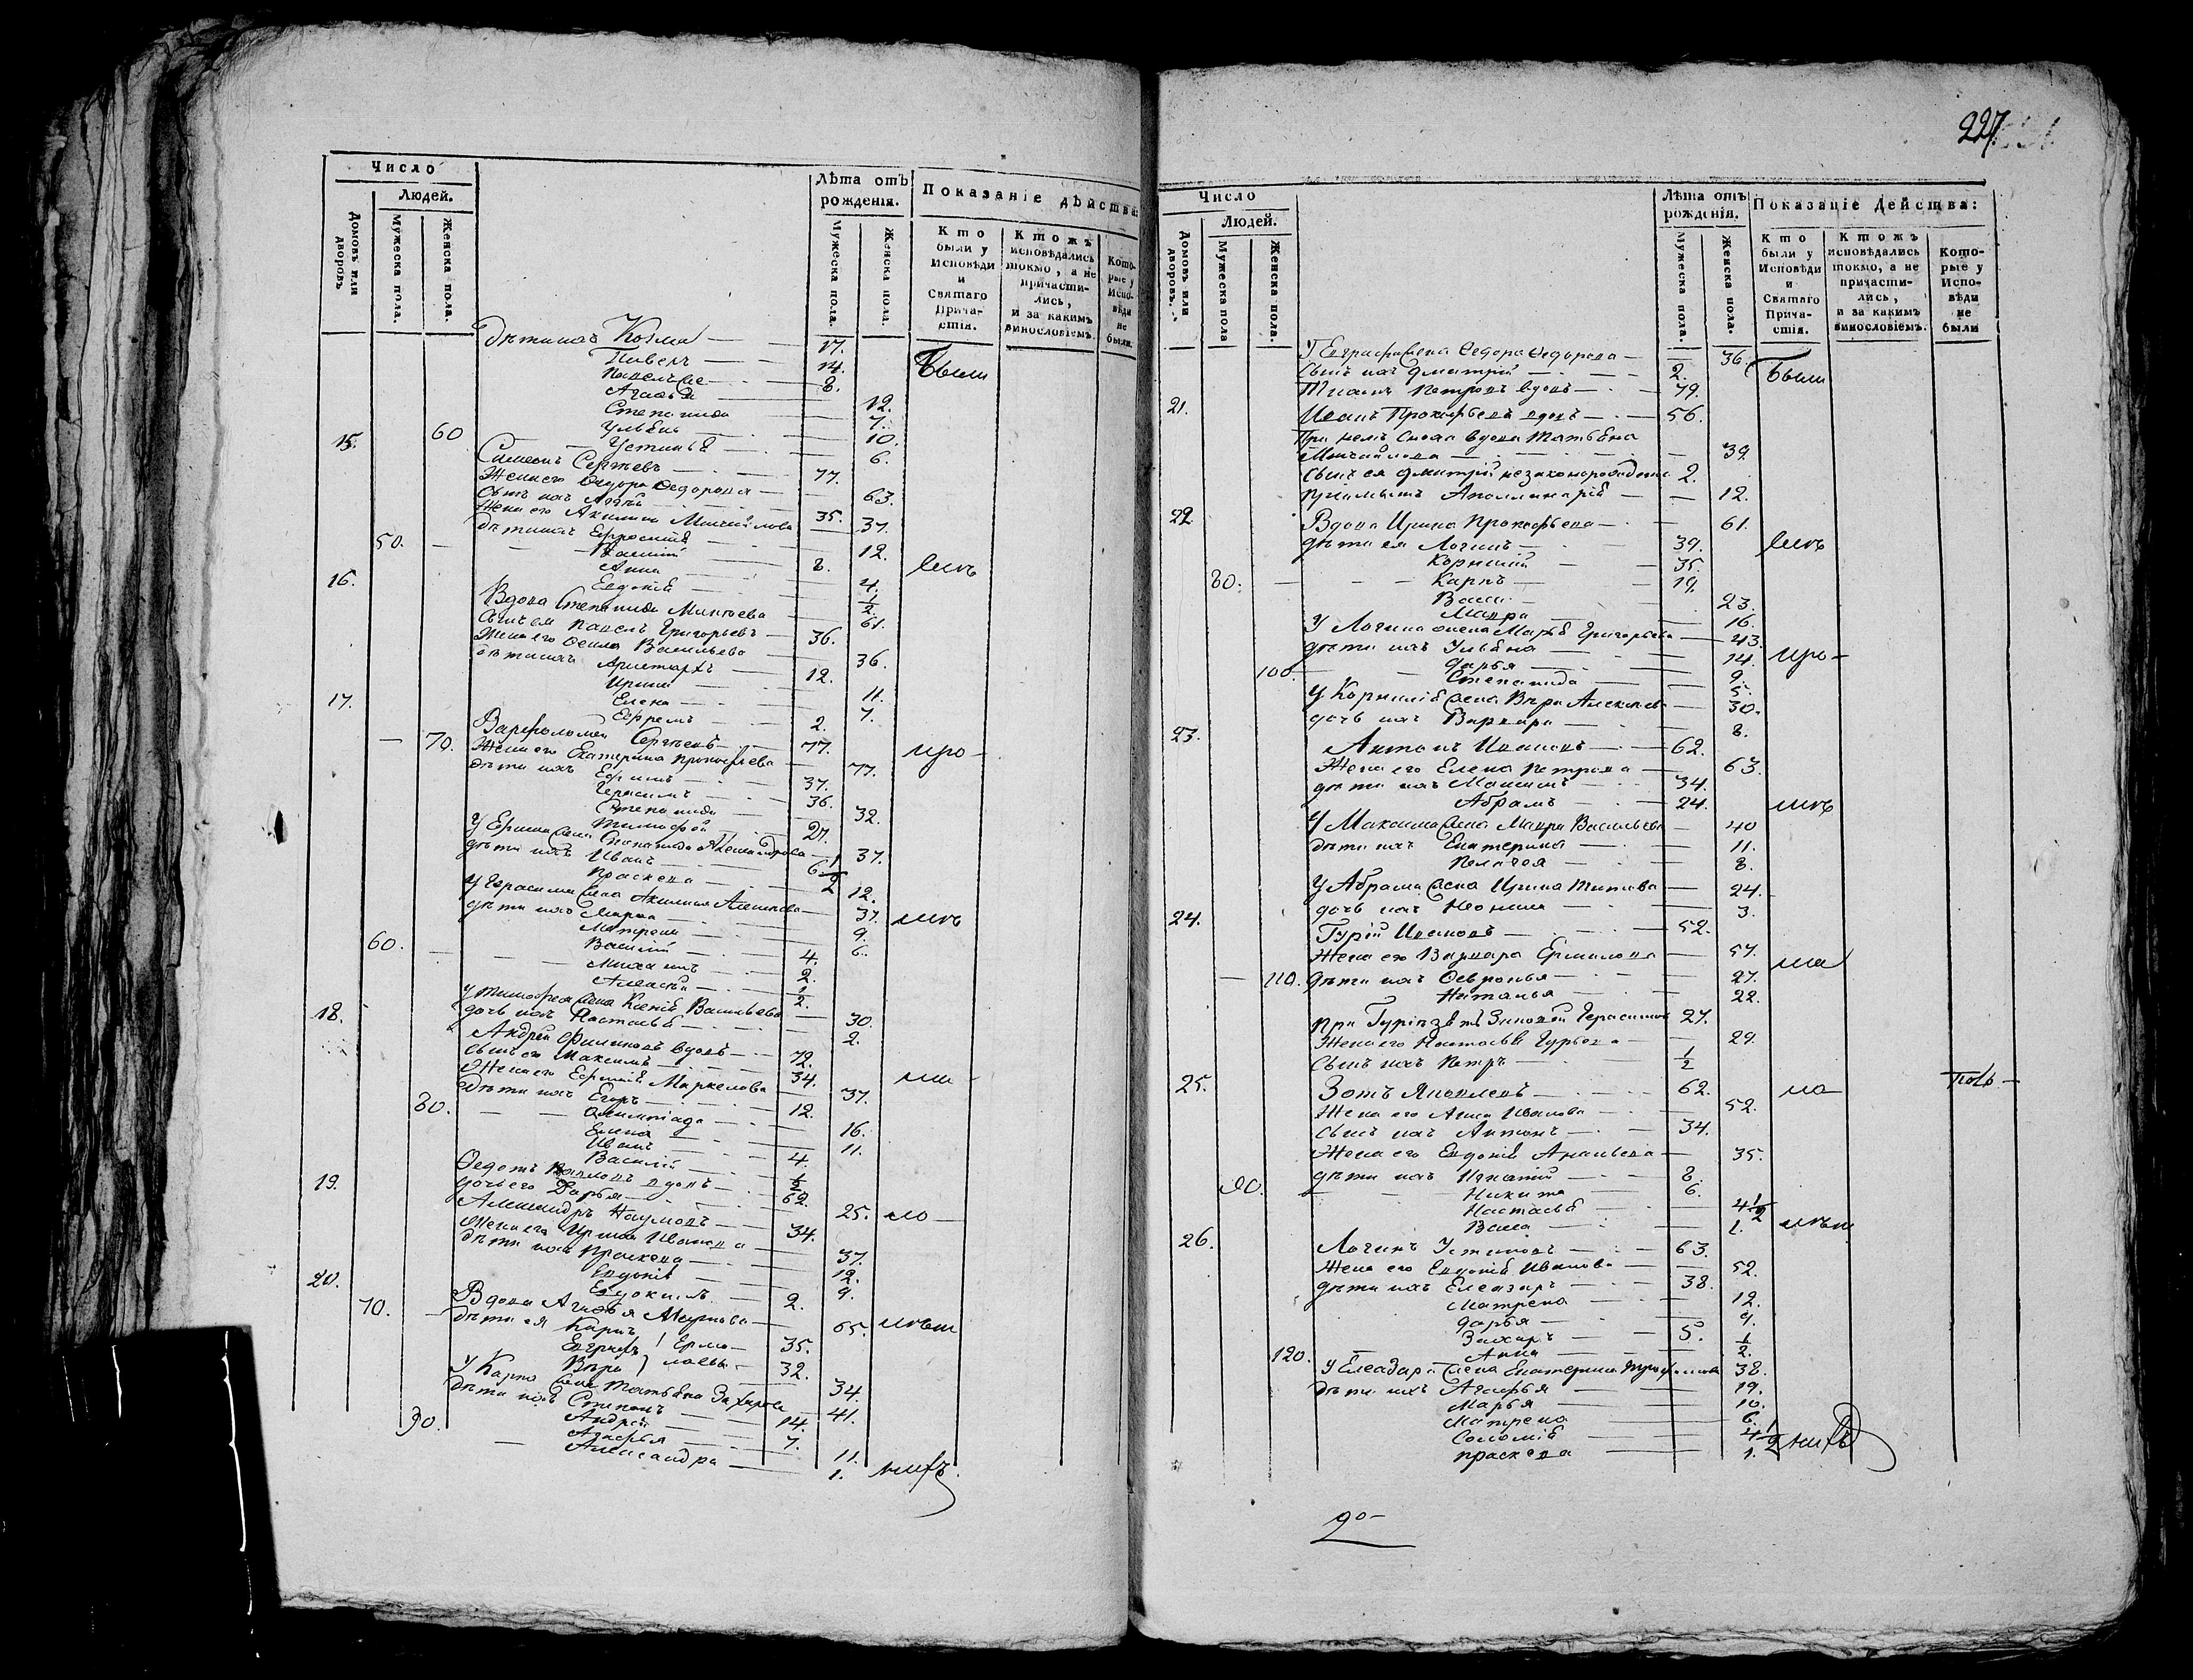 227.
Число
Людей.
Домовъ или дворовъ
Мужеска пола.
Женска пола.
Лѣта отъ рожденія.
Мужеска пола.
Женска пола.
Показаніе дѣйства:
Кто были у Исповѣди и Святаго Причастія.
Ктожъ исповѣдались токмо, а не причастились, и за какимъ винословіемъ.
Которые у Исповѣди не были.
дѣти ихъ Козма 17.
14. были
8.
Агафья 12.
Степанида 7.
60 Ульяна 10.
15. Устинья 6.
Симеонъ Сергѣевъ 77.
Жена его Ѳедора Ѳедорова 63.
Сынъ ихъ 35.
Жена его Акилина 37.
дѣти ихъ Ефросинія 12.
50. Василій 8.
Анна 4.
16. Евдокія 1/2.
Вдова Степанида 61.
Сынъ ея Павелъ Григорьевъ 36.
Жена его Васильева 36.
дѣти ихъ Аристархъ 12.
Ирина 11.
17. Елена 7.
Ефремъ 2.
Варфоломей Сергѣевъ 77.
70. Жена его Екатерина Прокофьева 77.
дѣти ихъ Ефимъ 37.
Герасимъ 36.
Степанида 32.
Тимофей 27.
У Ефима жена Степанида Александрова 37.
дѣти ихъ Иванъ 6 1/2
Праскева 12.
У Герасима жена Акилина 37.
дѣти ихъ Марѳа 9.
Матрона 6.
60. Василій 4.
Михаилъ 2.
Алексѣй 1/2.
У Тимофея жена Ксенія Васильева 30.
18. дочь ихъ Настасья 2.
Андрей Филиповъ вдовъ 72.
Сынъ его Максимъ 34.
Жена его Маркелова 37.
дѣти ихъ Егоръ 12.
80. Олимпіада 16.
Елена 11.
Иванъ 4.
Василій 1/2
Ѳедотъ вдовъ 62.
19. дочь его Дарья 25.
Александръ Наумовъ 34.
Жена его Ирина Иванова 37.
дѣти ихъ Праскева 12.
Евдокія 9.
20. Евдокимъ 2.
70. Вдова Агафья 65.
дѣти ея Карпъ 35.
Евграфъ 32.
Вѣра 34.
У Карпа жена Татьяна Захарова 41.
дѣти ихъ Степанъ 14.
90. Андрей 7.
Агафья 11.
Александра 1.
Число
Людей.
Домовъ или дворовъ.
Мужеска пола
Женска пола.
Лѣта отъ рожденія.
Мужеска пола.
Женска пола.
Показаніе Дѣйства:
Кто были у Исповѣди и Святаго Причастія.
Ктожъ исповѣдались токмо, а не причастились, и за какимъ винословіемъ.
Которые у Исповѣди не были
У Евграфа жена Ѳедора Ѳедорова 36. были
Сынъ ихъ Дмитрій 2.
Петровъ вдовъ 79.
21. Иванъ Прокофьевъ вдовъ 56.
При немъ сноха вдова Татьяна
Михайлова 39
Сынъ ея Дмитрій незаконорожденный 2.
Аполлинарія 12.
22 Вдова Ирина Прокофьева 61.
дѣти ея Логинъ 39.
Корнилій 35.
80. Карпъ 19.
Васса 23.
Мавра 16.
У Логина жена Марья Григорьева 43.
дѣти ихъ Ульяна 14.
Дарья 9.
100. Степанида 5.
У Корнилія жена Вѣра Алексѣева 30.
дочь ихъ Варвара 8.
23. Антонъ Ивановъ 62.
Жена его Елена Петрова 63.
дѣти ихъ Максимъ 34.
Абрамъ 24.
У Максима жена Мавра Васильева 40
дѣти ихъ Екатерина 11.
Пелагея 8.
У Абрама жена Ирина Титова 24.
дочь ихъ Неонила 3.
24. Гурій Ивановъ 52.
Жена его Варвара Ермилова 57.
110. дѣти ихъ Ѳевронья 27.
Наталья 22.
При Гуріи зять Зиновей Герасимовъ 27.
Жена его Настасья Гурьева 29.
Сынъ ихъ Петръ 1/2
25. Зотъ Яковлевъ 62.
Жена его Анна Иванова 52.
Сынъ ихъ Антонъ 34.
Жена его Евдокія Ананьева 35.
дѣти ихъ Игнатій 8.
90. Никита 6.
Настасья 4 1/2
Васса 1.
26. Логинъ Устиновъ 63.
Жена его Евдокія Иванова 52.
дѣти ихъ Елеазаръ 38.
Матрена 12.
Дарья 9.
Захаръ 5.
120. Анна 1/2.
У Елеазара жена Екатерина Трофимова 38.
дѣти ихъ Агафья 19.
Марья 10.
Матрена 6.
Соломія 4 1/2
Праскева 1.
90